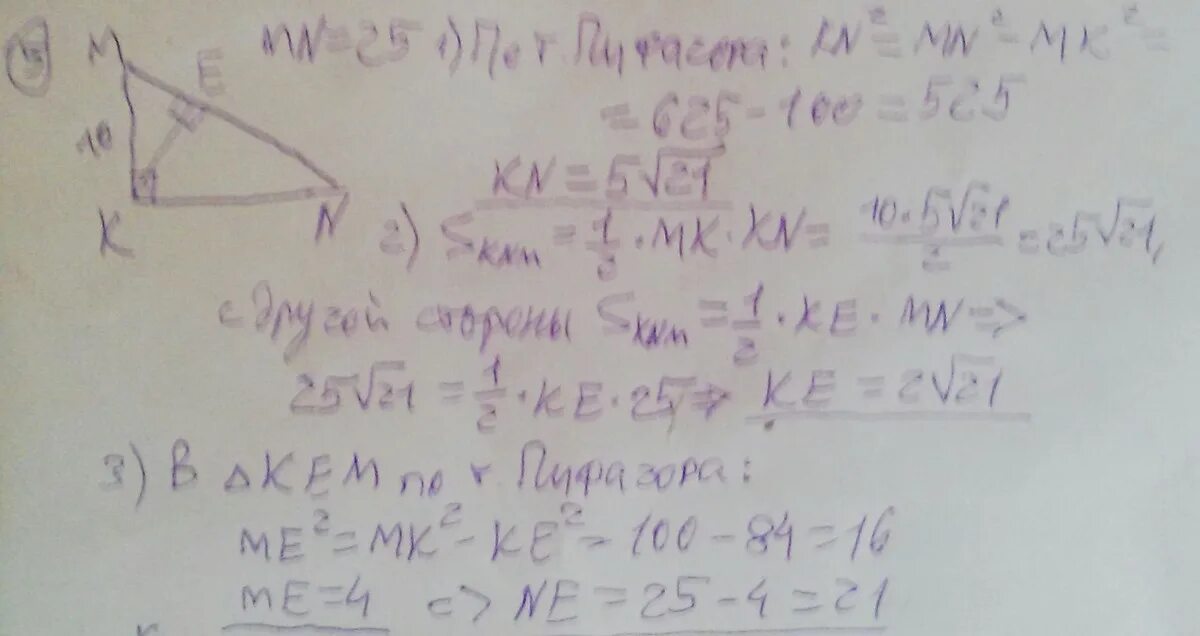 5) MN=25 1) По т. Пифагора: KN² = MN² - MK² =
M E
10
= 625 - 100 = 525
KN = 5√21
K N
2) S_KNM = 1/2 · MK · KN = 10·5√21/2 = 25√21,
с другой стороны S_KNM = 1/2 · KE · MN =>
25√21 = 1/2 · KE · 25 => KE = 2√21
3) В △KEM по т. Пифагора:
ME² = MK² - KE² = 100 - 84 = 16
ME=4 => NE = 25 - 4 = 21